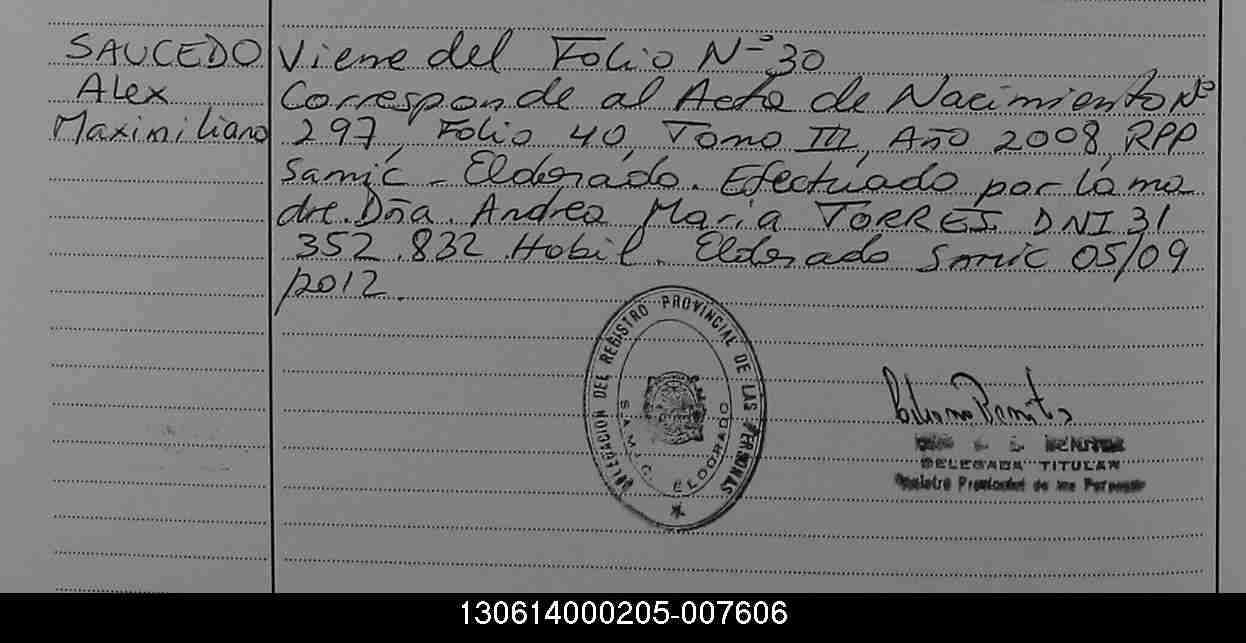 SAUCEDO
Alex
Maximiliano
Viene del Folio N° 30
Corresponde al Acta de Nacimiento N°
297, Folio 40, Tomo III, Año 2008, RPP
Samic - Eldorado. Efectuado por la ma
dre. Dña. Andrea María TORRES. DNI 31
352.832 Habil. Eldorado Samic 05/09
/2012.
DELEGACION DEL REGISTRO PROVINCIAL DE LAS PERSONAS
S.A.M.I.C. ELDORADO
DELEGADA TITULAR
Registro Provincial de las Personas
130614000205-007606